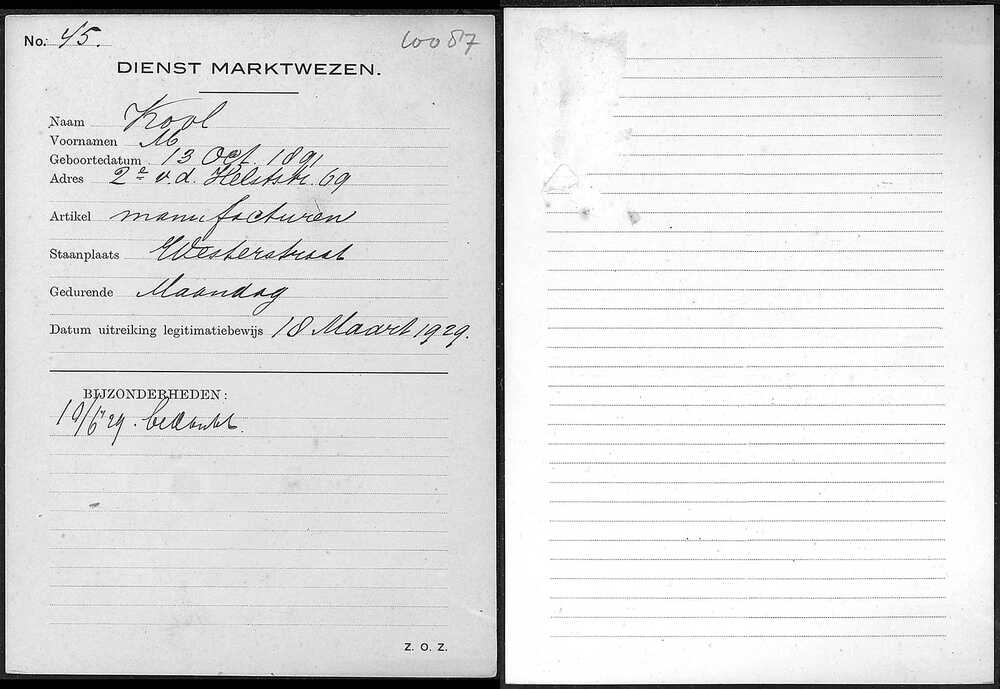 No. 45. 10087
DIENST MARKTWEZEN.
Naam Kool
Voornamen M
Geboortedatum 13 Oct. 1891
Adres 2e v.d. Helststr. 69
Artikel manufacturen
Staanplaats Westerstraat
Gedurende Maandag
Datum uitreiking legitimatiebewijs 18 Maart 1929.
BIJZONDERHEDEN:
10/6 '29. bedankt.
Z. O. Z.